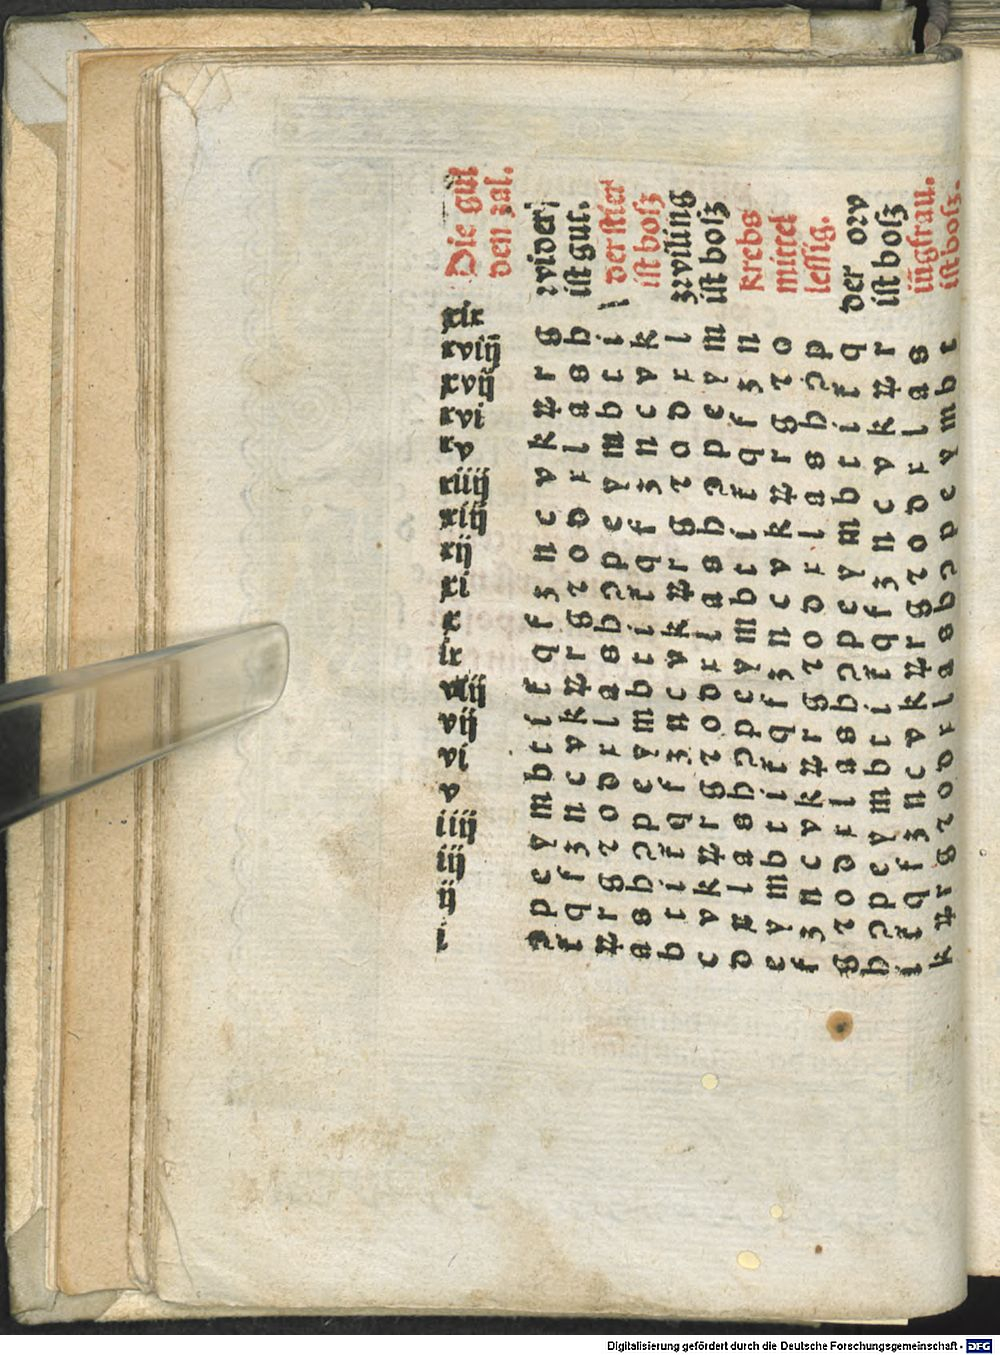 i ij iij iiij v vi vij viij ix x xi xij xiij xiiij xv xvi xvij xviij xix Die gül
den zal.
ɔ p e y m b t i ſ q f ʒ n c v k ꝝ r g wider
ſ q f ʒ n c v k ꝝ r g ꝛ o d x l a s h ist gut.
ꝝ r g ꝛ o d x l a s h ɔ p e y m b t i der stier
a s h ɔ p e y m b t i ſ q f ʒ n c v k ist boß
b t i ſ q f ʒ n c v k ꝝ r g ꝛ o d x l zwiling
c v k ꝝ r g ꝛ o d x l a s h ɔ p e y m ist boß
d x l a s h ɔ p e y m b t i ſ q f ʒ n krebs
e y m b t i ſ q f ʒ n c v k ꝝ r g ꝛ o mittel
f ʒ n c v k ꝝ r g ꝛ o d x l a s h ɔ p lessig.
g ꝛ o d x l a s h ɔ p e y m b t i ſ q der
h ɔ p e y m b t i ſ q f ʒ n c v k ꝝ r ist boß
i ſ q f ʒ n c v k ꝝ r g ꝛ o d x l a s iüngfrau.
k ꝝ r g ꝛ o d x l a s h ɔ p e y m b t ist boß.
Digitalisierung gefördert durch die Deutsche Forschungsgemeinschaft - DFG